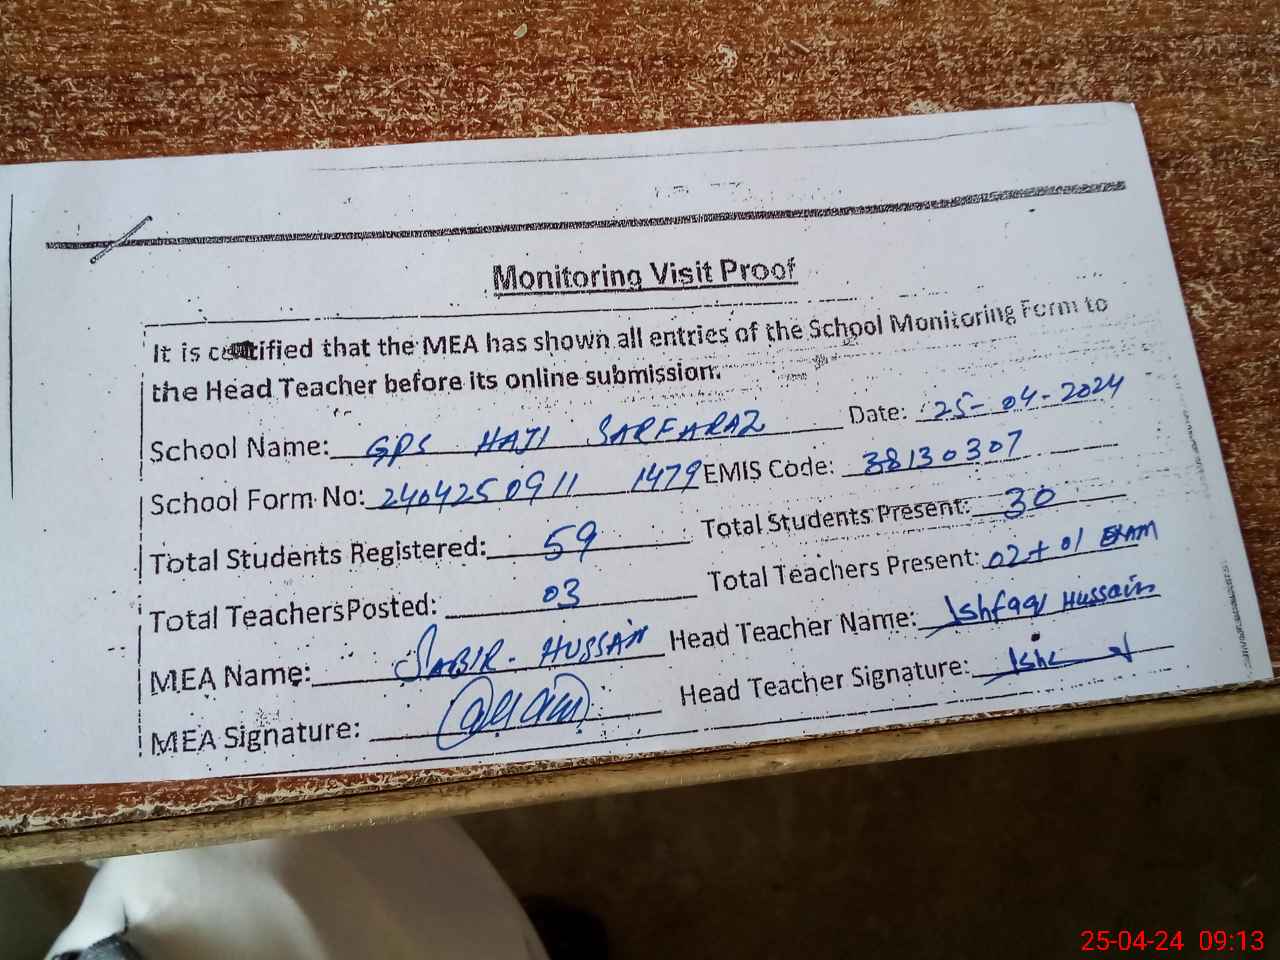 Monitoring Visit Proof
It is certified that the MEA has shown all entries of the School Monitoring Form to
the Head Teacher before its online submission.
School Name: GPS HAJI SARFARAZ Date: 25-04-2024
School Form No: 2404250911 1479 EMIS Code: 38130307
Total Students Registered: 59 Total Students Present: 30
Total Teachers Posted: 03 Total Teachers Present: 02+01 EXAM
MEA Name: SABIR. HUSSAIN Head Teacher Name: Ishfaq Hussain
MEA Signature: Head Teacher Signature:
25-04-24 09:13